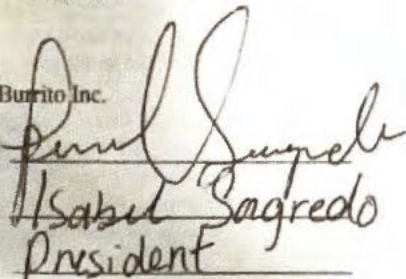 Burrito Inc.
Isabel Sagredo
President